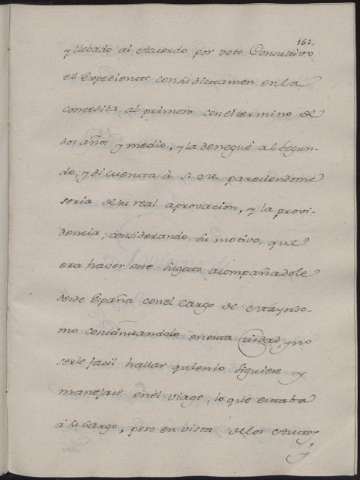 162.
y llebado al Acuerdo por voto Consultivo
el Expediente con su dictamen en la
concedia al primero con el termino de
dos años y medio, y la denegué al segun-
do, y di cuenta á S. M. pareciendome
seria de su real aprovacion, y la provi-
dencia, considerando su motivo, que
era haver este sugeto acompañadole
desde España con el cargo de
mo continuandole en esta ciudad, y no
serle facil hallar quien lo siguiese y
manejase en el viage, lo que estaba
á su cargo, pero en vista de los Autos